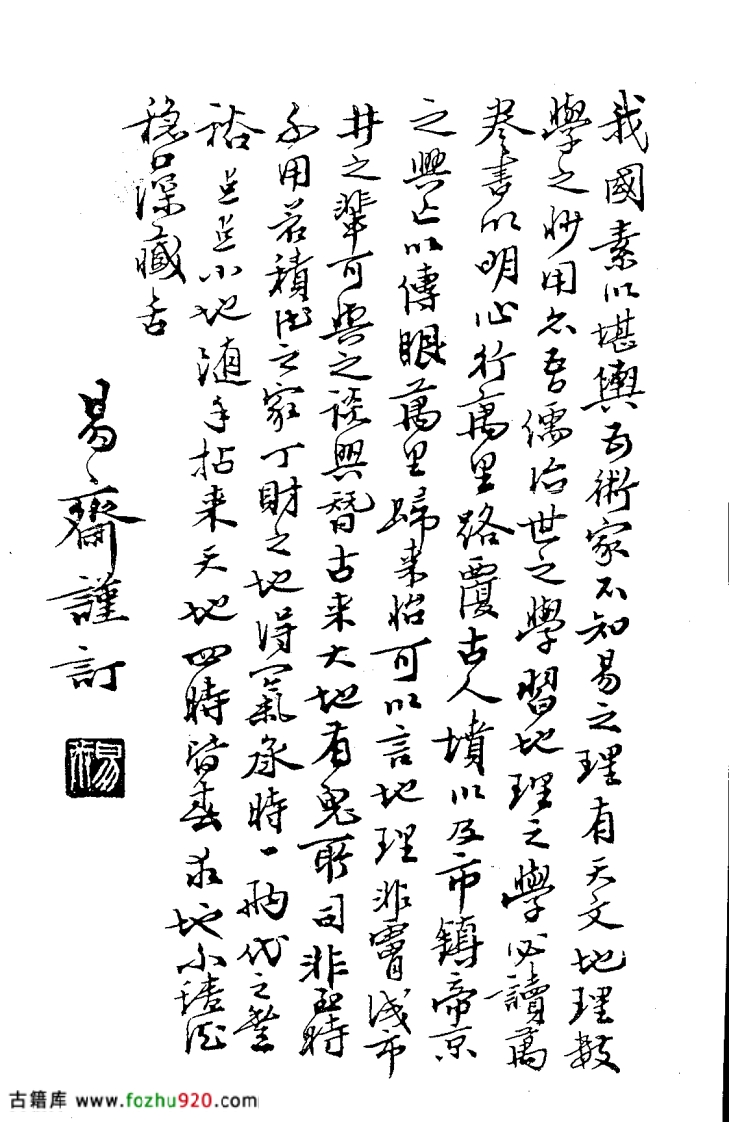 我國素以堪輿為術家不知易之理有天文地理數
學之妙用亦吾儒治世之學習地理之學必讀萬
卷書以明心行萬里路覆古人墳以及市鎮帝京
之興亡以傳眼萬里歸來始可以言地理非胃淺市
井之輩可與之談興替古來大地有鬼所司非其時
不用若積德之家丁財之地得氣承時一兩代之
裕豈小地隨手拈來天地四時皆春求地不請
穩口深藏舌
易齋謹訂
易
古籍库 www.fozhu920.com